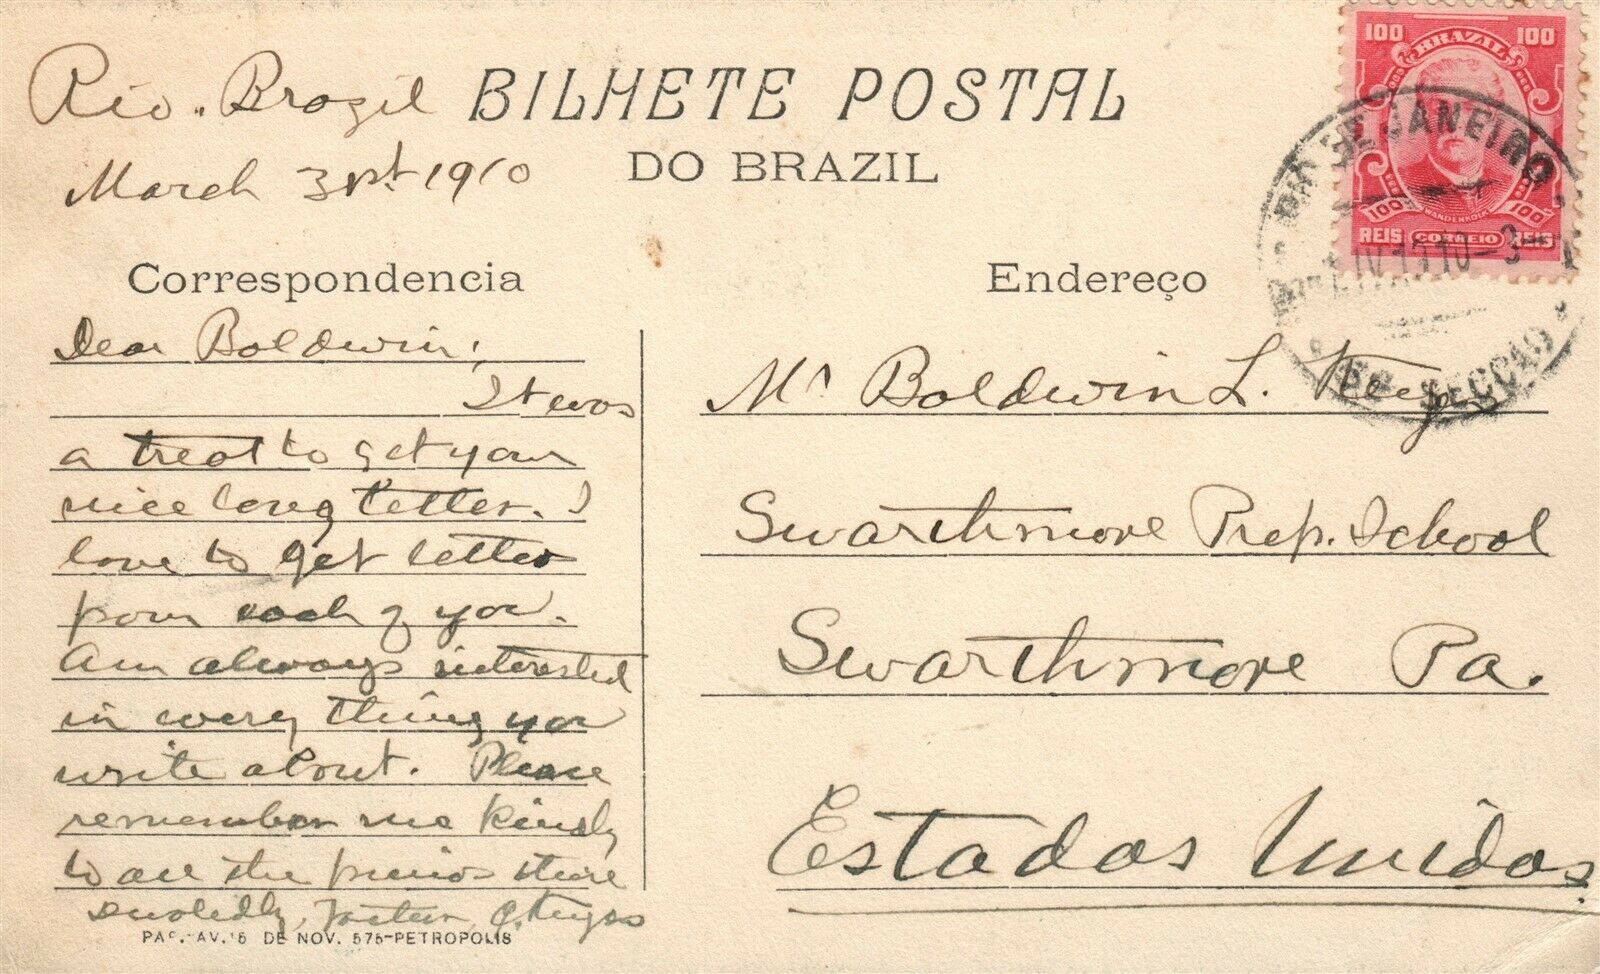 Rio. Brazil
March 31st 1910
BILHETE POSTAL
DO BRAZIL
100 100
BRAZIL
WANDENKOLK
100 100
REIS CORREIO REIS
RIO DE JANEIRO
IV 1910-3
SECÇÃO
Correspondencia
Dear Boldwin,
It was
a treat to get your
nice long letter. I
love to get letters
from each of you.
Am always interested
in every thing you
write about. Please
remember me kindly
to all the there
devotedly,
PAP. AV. 15 DE NOV. 575-PETROPOLIS
Endereço
Mr Boldwin L. Keys
Swarthmore Prep. School
Swarthmore Pa.
Estados Unidos